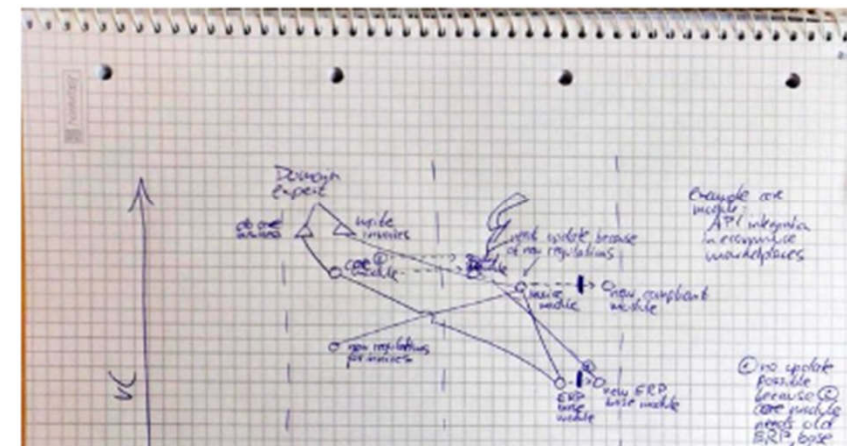 Domain
expert
do core
business
write
invoices
core
module
need update because
of new regulations
invoice
module
new compliant
module
new regulations
for invoices
ERP
base
module
new ERP
base module
VC
Example core
module:
API integration
in ecommerce
marketplaces
no update
possible
because
core module
needs old
ERP base